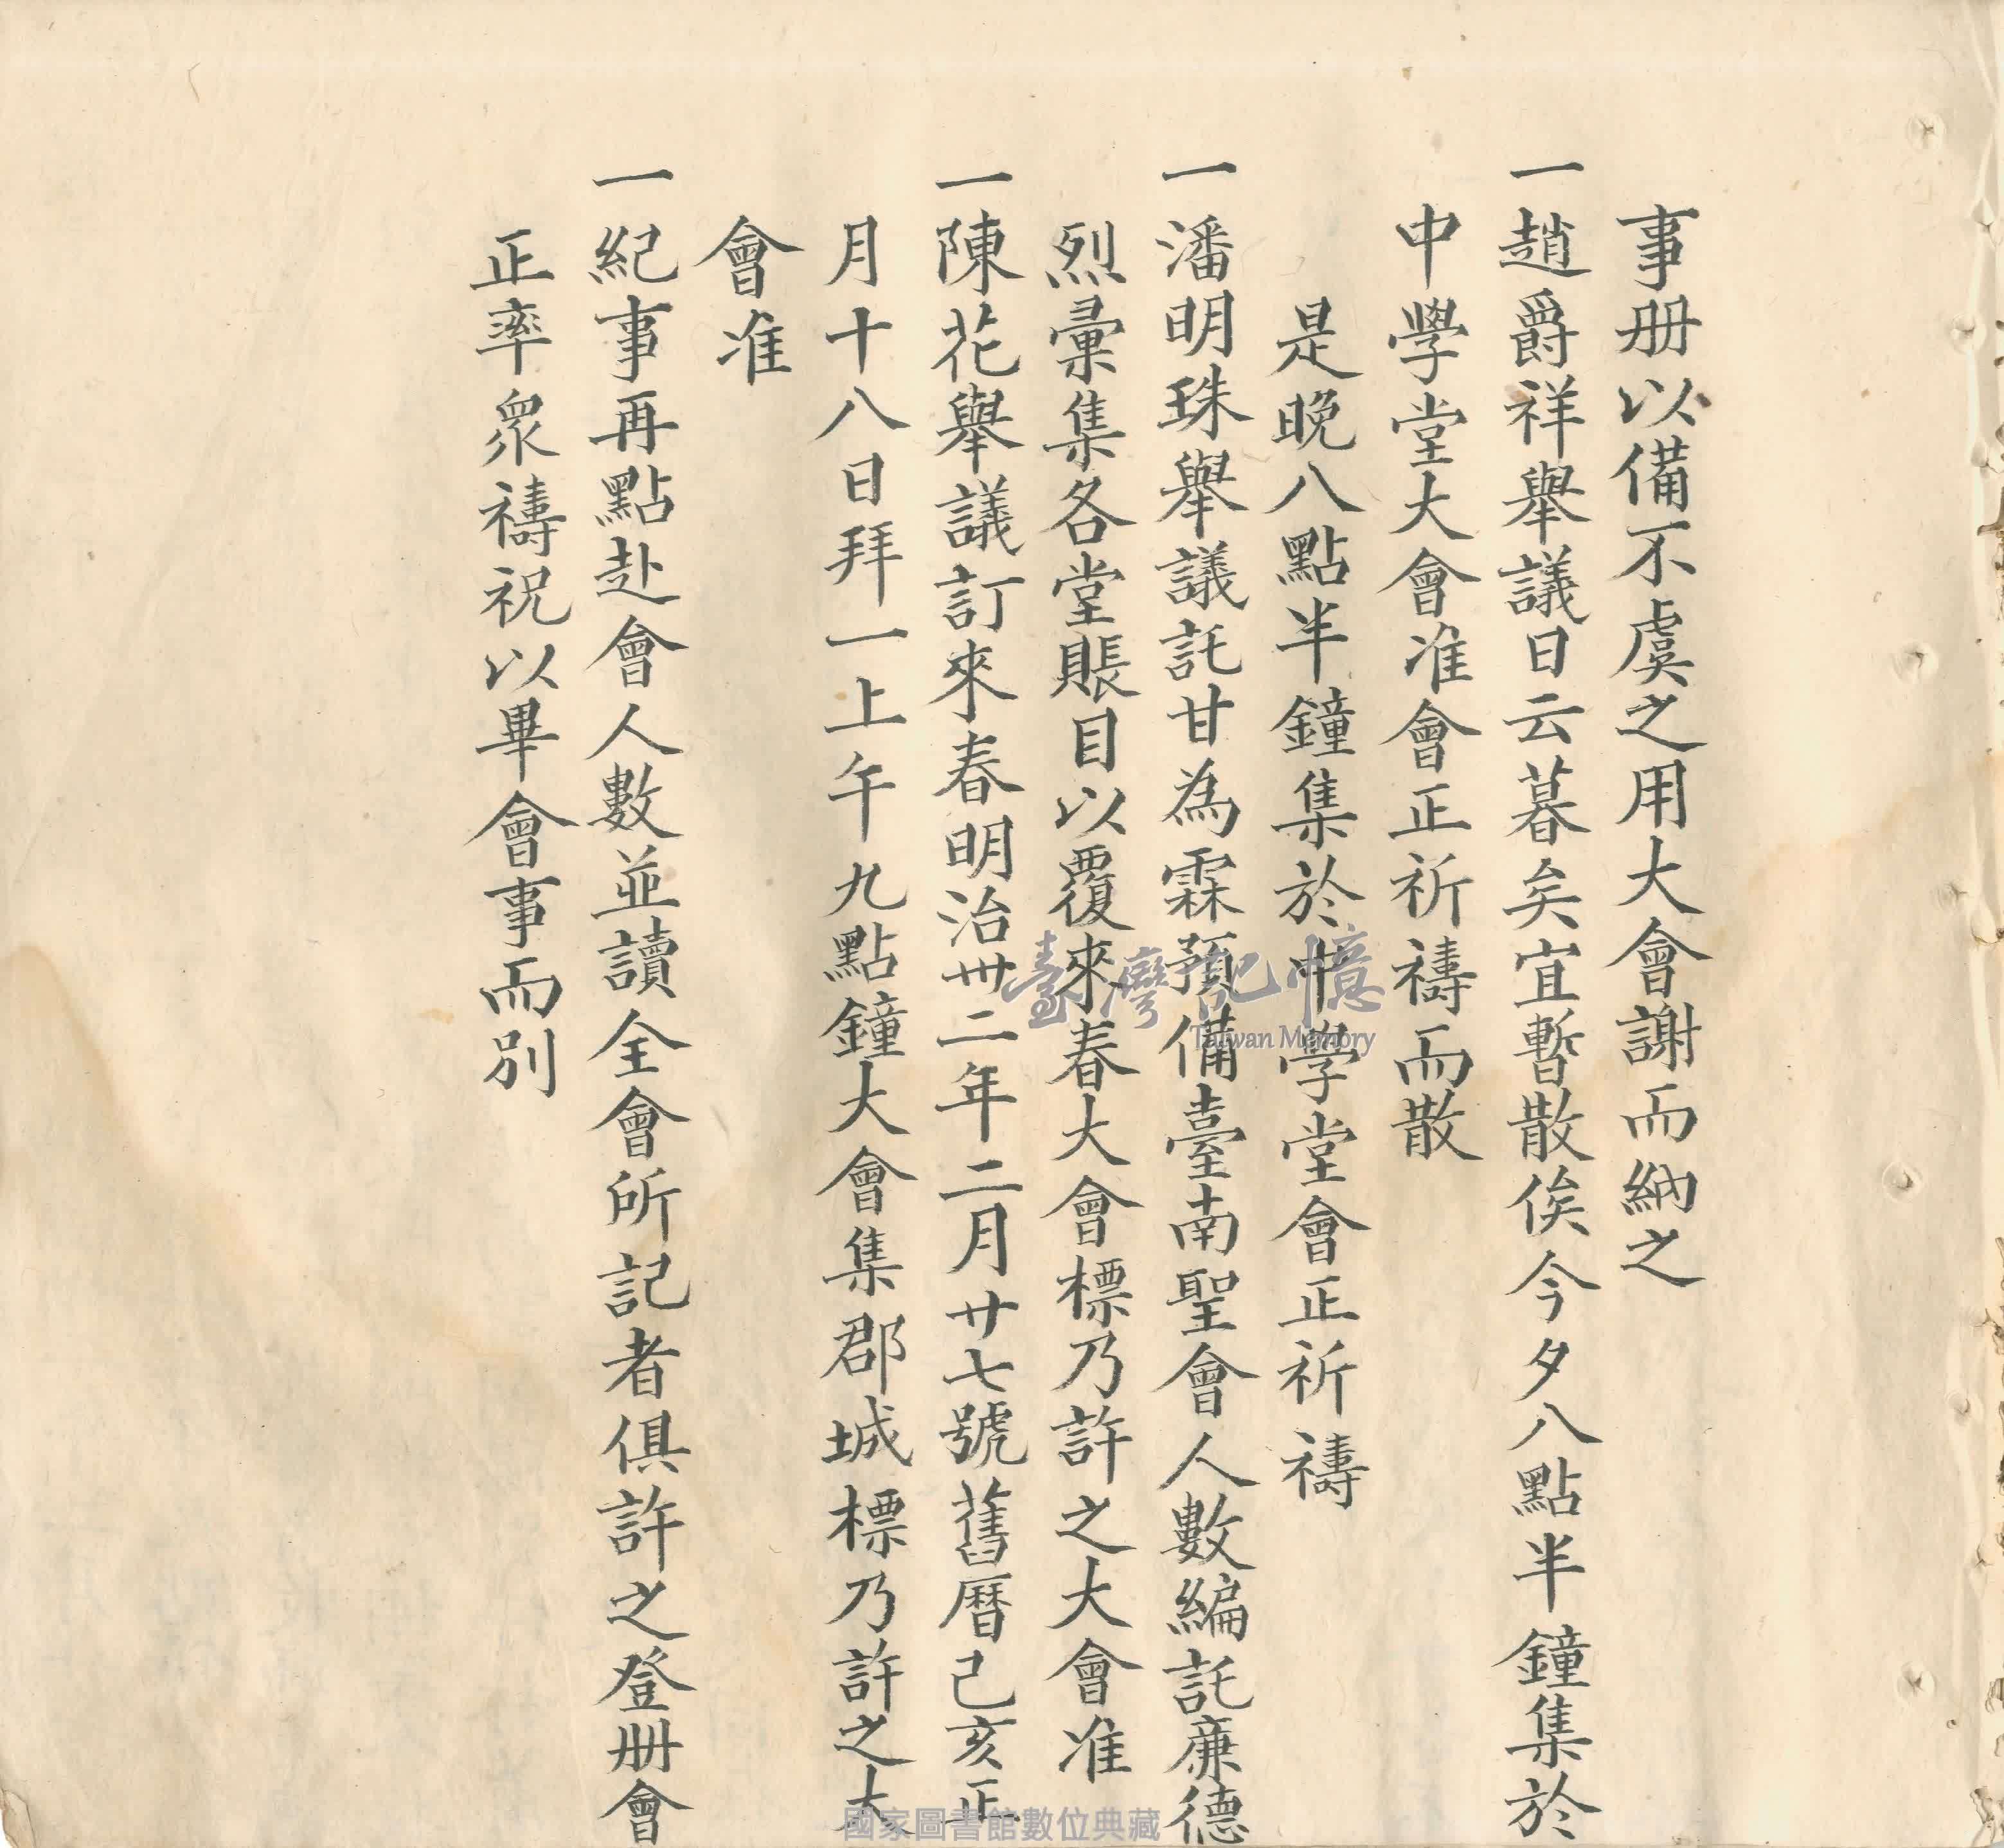 事册以備不虞之用大會謝而納之
一趙爵祥舉議日云暮矣宜暫散俟今夕八點半鐘集於
中學堂大會准會正祈禱而散
是晚八點半鐘集於中學堂會正祈禱
一潘明珠舉議託甘為霖預備臺南聖會人數編託廉德
烈彚集各堂賬目以覆來春大會標乃許之大會准
一陳花舉議訂來春明治卅二年二月廿七號舊曆己亥正
月十八日拜一上午九點鐘大會集郡城標乃許之大
會准
一紀事再點赴會人數並讀全會所記者俱許之登册會
正率眾禱祝以畢會事而別
臺灣記憶
Taiwan Memory
國家圖書館數位典藏